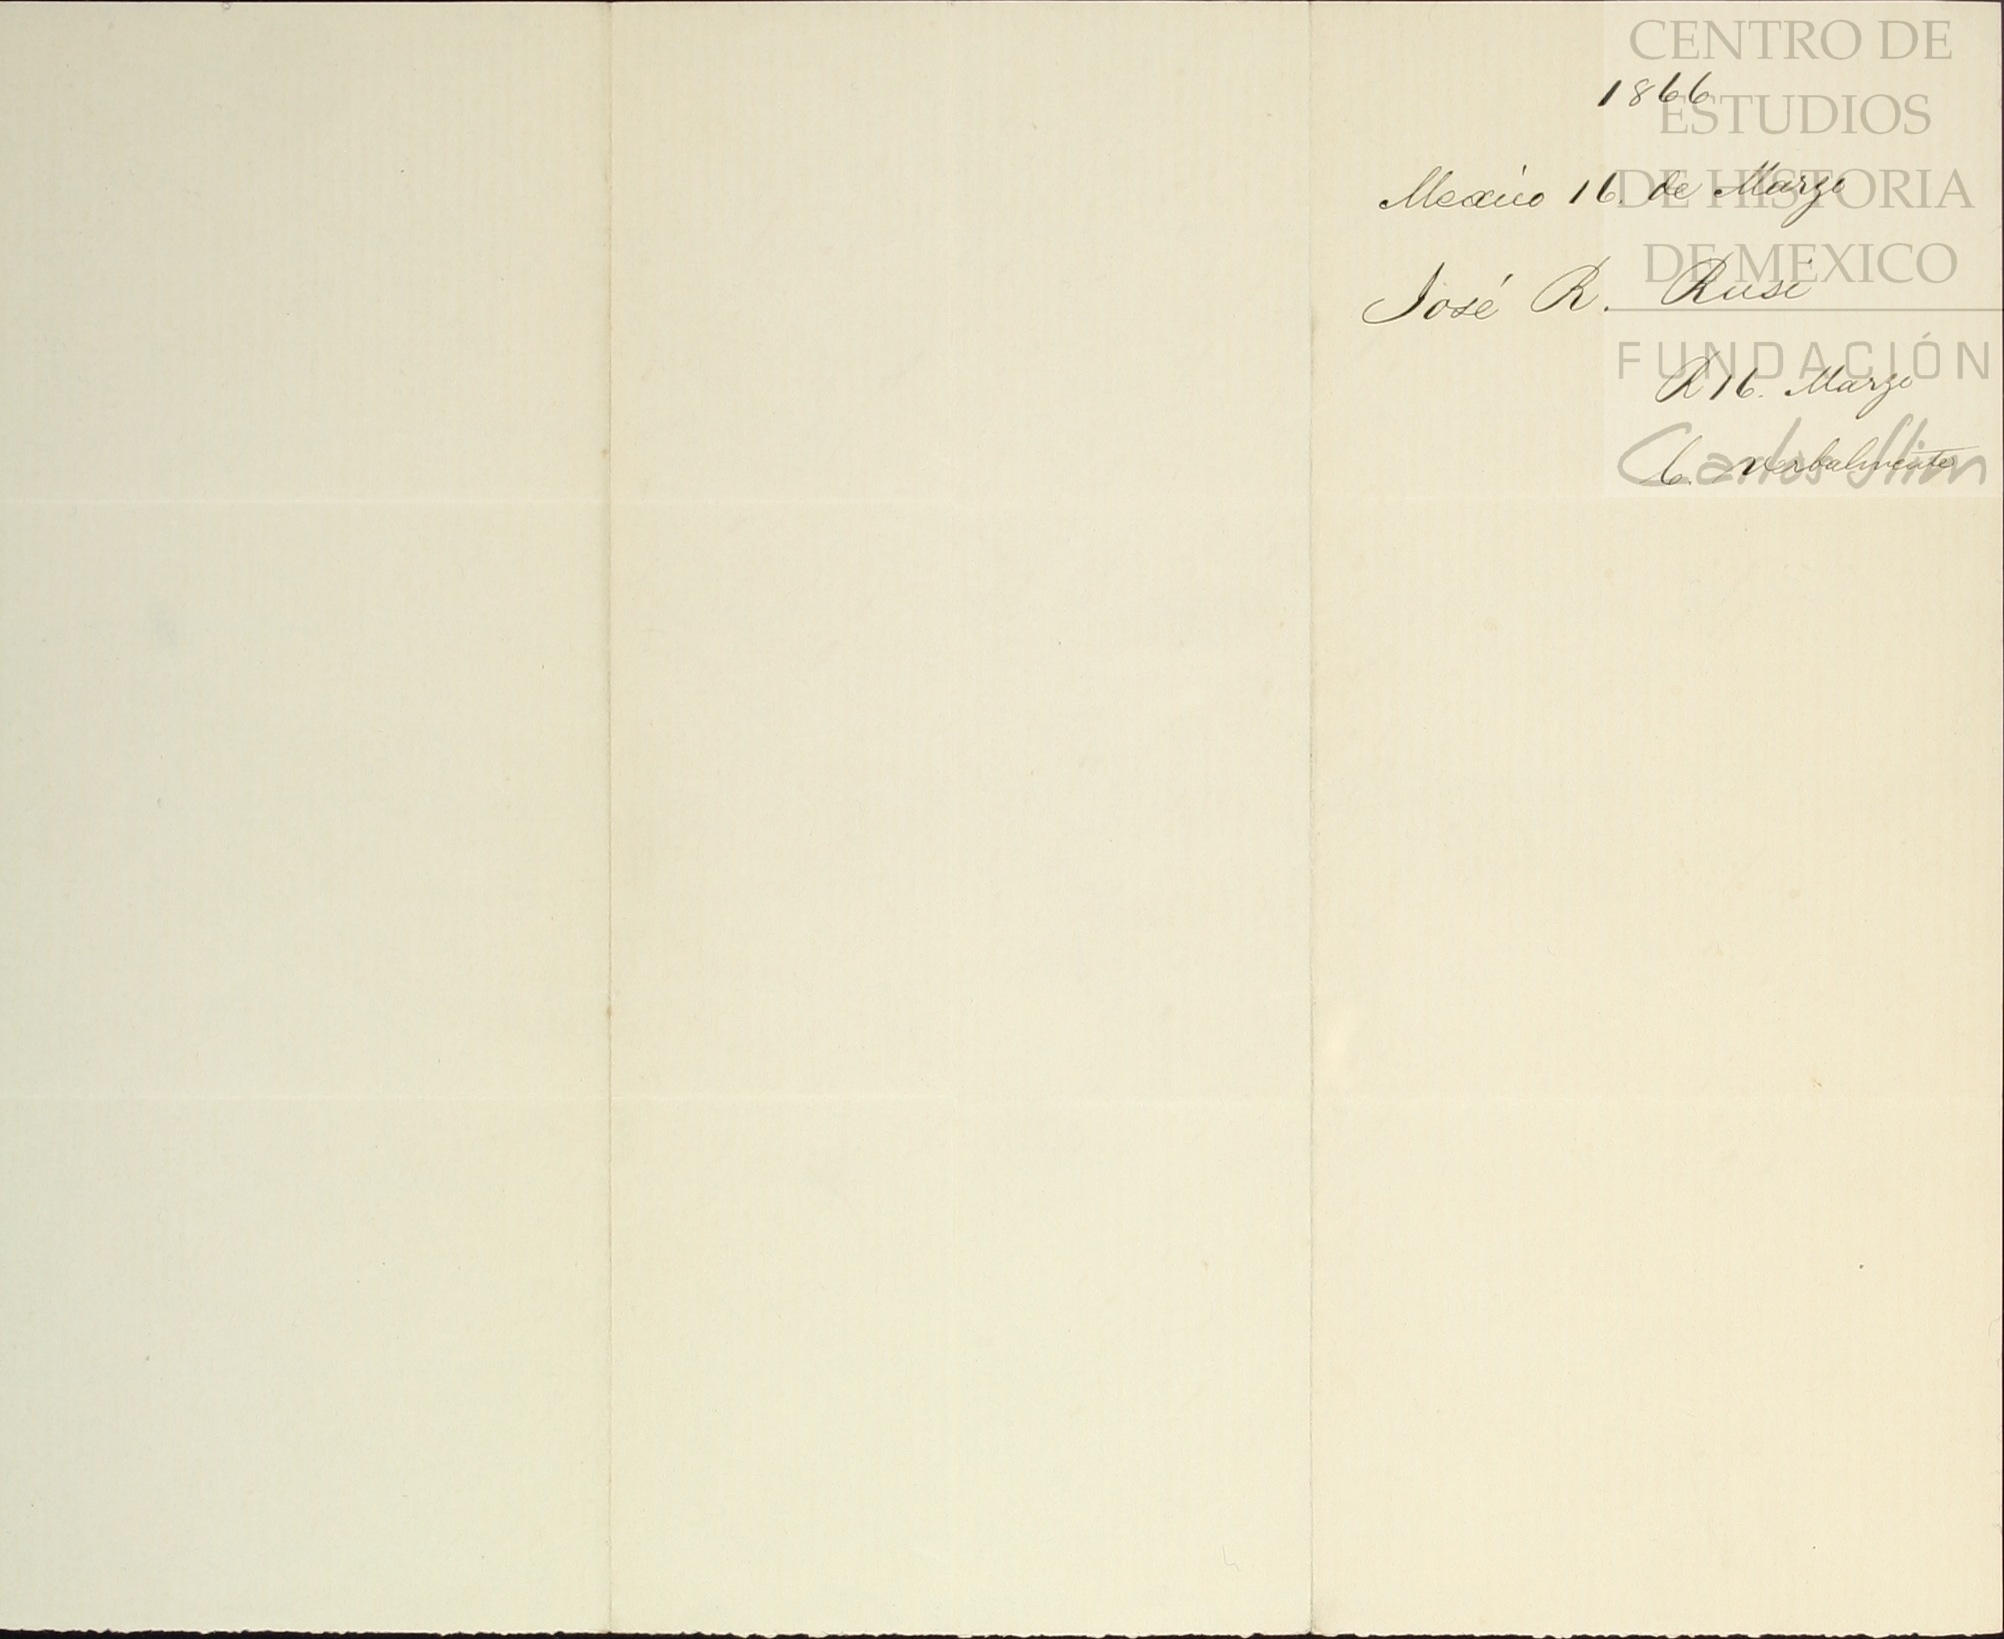 1866
Mexico 16. de Marzo
José R. Rusi
R 16. Marzo
C. verbalmente
CENTRO DE
ESTUDIOS
DE HISTORIA
DE MEXICO
FUNDACIÓN
Carlos Slim